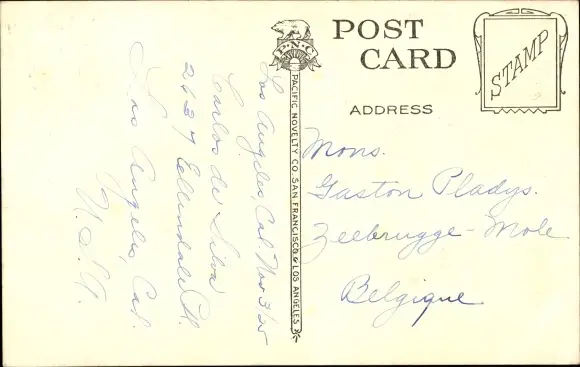 P.N.C.
POST
CARD
STAMP
ADDRESS
PACIFIC NOVELTY CO. SAN FRANCISCO & LOS ANGELES
Los Angeles Cal. Nov 3/25
Carlos de Silva
2637 Ellendale Pl.
Los Angeles, Cal.
U.S.A.
Mons.
Gaston Pladys.
Zeebrugge - Mole
Belgique